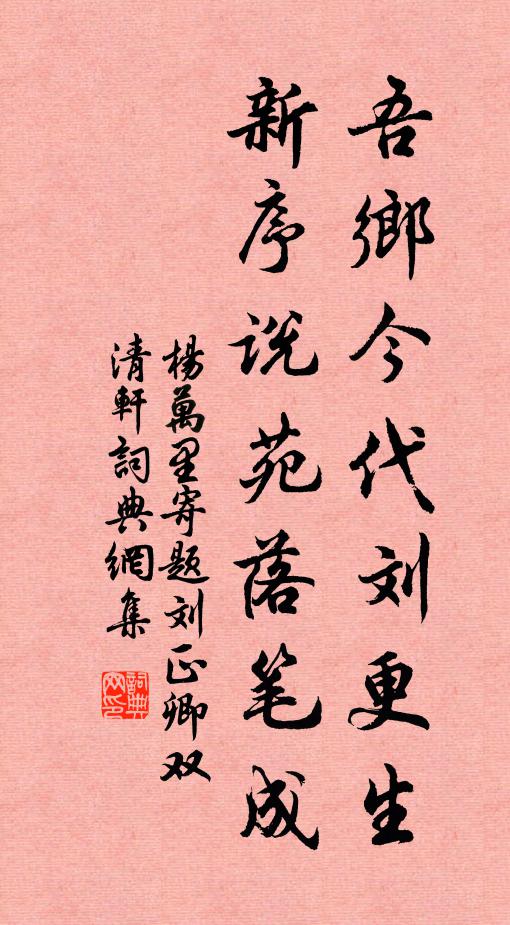 吾鄉今代刘更生
新序说苑落笔成
楊萬里寄题刘正卿双
清軒詞典網集
詞典網印